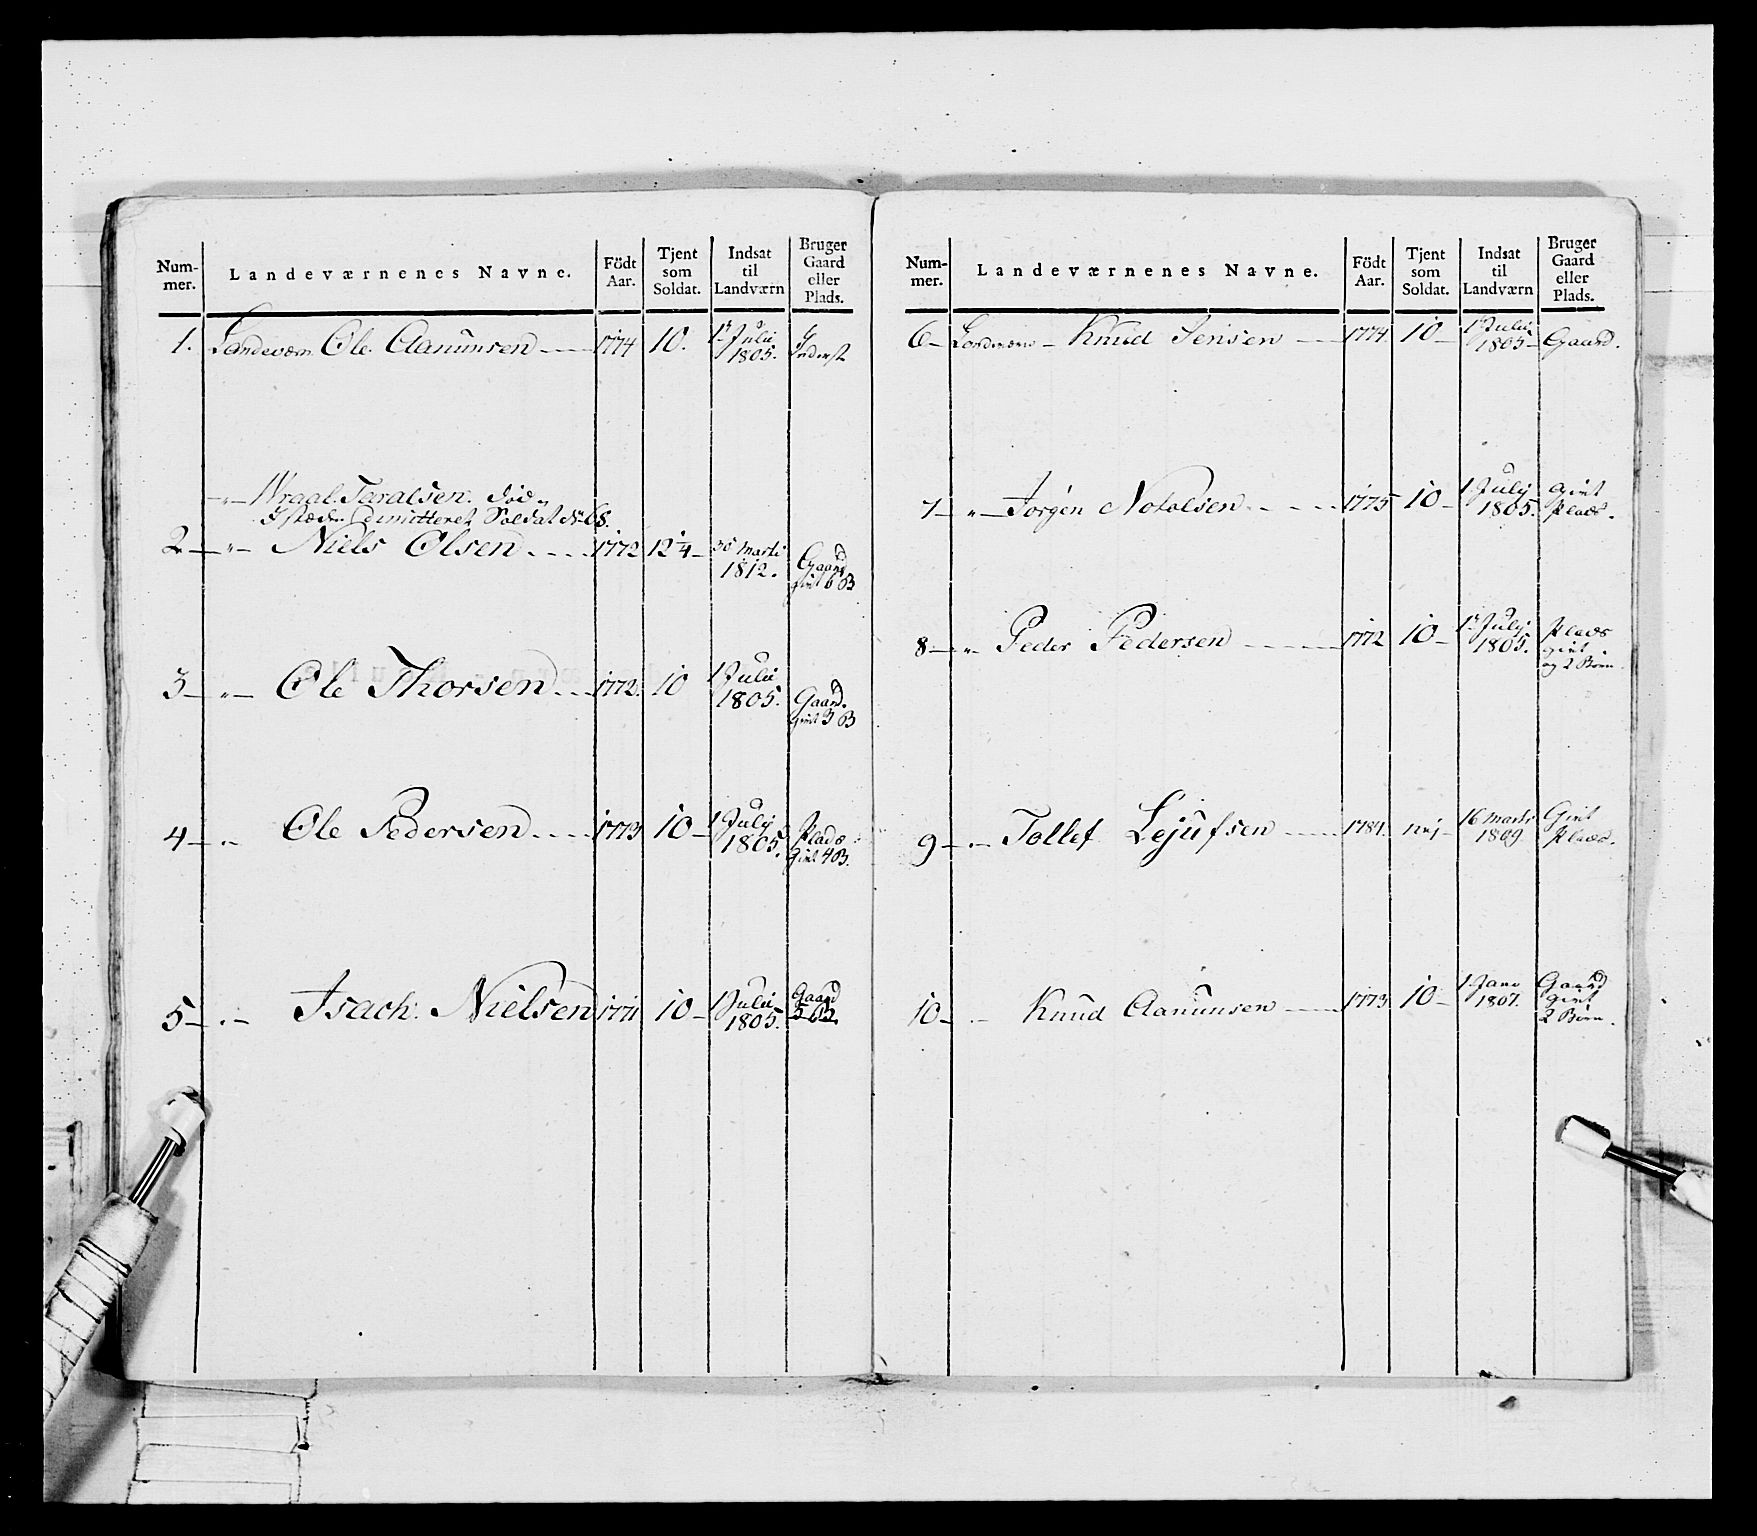 Num-mer. Landeværnenes Navne. Födt Aar. Tjent som Soldat. Indsat til Landværn Bruger Gaard eller Plads.
1. Landeværn Ole Aanunsen 1774 10. 1t Julii 1805. Inderst
-"- Wraal Taralsen. död.
I stæden dimitteret Soldat No 68.
2 -"- Niels Olsen 1772 12 1/4 30 Marti 1812. Gaard givt 6 B
3 -"- Ole Thorsen 1772 10 1 Julii 1805. Gaard. givt 3 B
4 -"- Ole Pedersen 1773 10 1 July 1805. Plads Givt 4 B.
5 -"- Isach Nielsen 1771 10 1 Julii 1805. Gaard 5 B.
Num-mer. Landeværnenes Navne. Födt Aar. Tjent som Soldat. Indsat til Landværn Bruger Gaard eller Plads.
6 Landeværn Knud Jensen 1774 10 1t Julii 1805 Gaard.
7 -"- Jörgen Notolsen 1775 10 1 July 1805. givt Plads.
8 -"- Peder Pedersen 1772 10 1t July 1805. Plads givt og 2 Börn
9 -"- Tollef Lejufsen 1784. nej 16 Marti 1809 Givt Plads.
10 -"- Knud Aanunsen 1773 10 1 Janv 1807. Gaard givt 2 Börn.